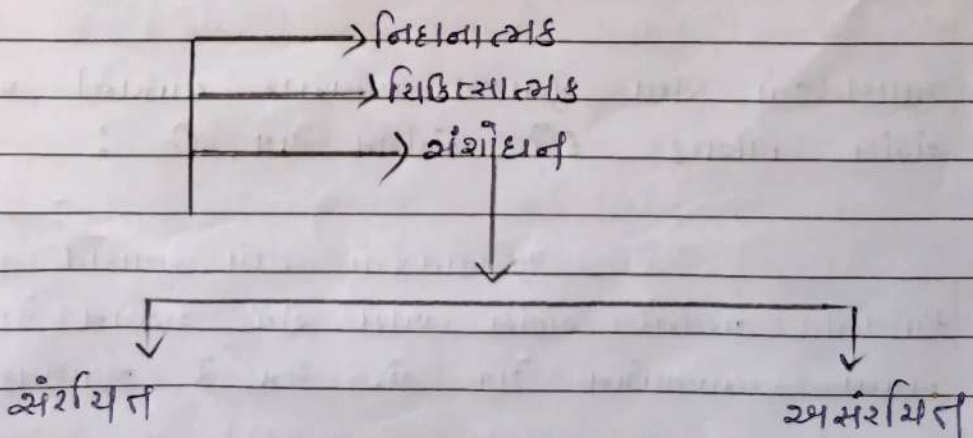 નિદાનાત્મક
ચિકિત્સાત્મક
સંશોધન
સંરચિત
અસંરચિત